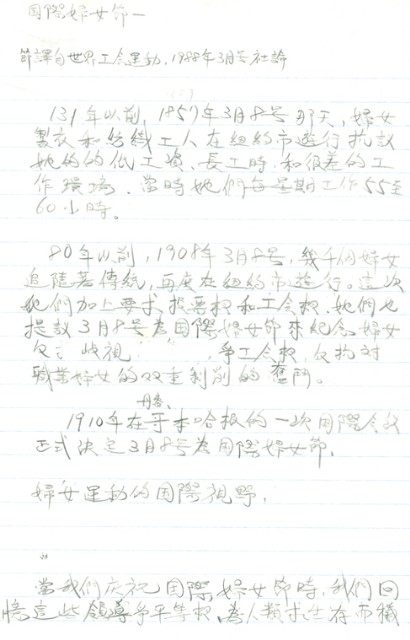 国際婦女節—
節譯自世界工会運動,1988年3月号社論
131年以前,1857年3月8号那天,婦女
製衣和紡織工人在纽約市遊行抗議
她的的低工資、長工時和很差的工
作環境.當時她們每星期工作55至
60小時。
80年以前,1908年3月8号,幾千個婦女
追隨着傳統,再度在纽約市遊行。這次
她們加上要求投票权和工会权.她們也
提議3月8号為国際婦女節來紀念婦女
反 歧視 爭工会权,反抗对
職業婦女的双重剥削的奮鬥。
丹麥、
1910年在哥本哈根的一次国際会议
正式決定3月8号為国際婦女節.
婦女運動的国際視野,
當我們庆祝国際婦女節時,我們回
憶這些領導爭平等权.為人類求生存而犧